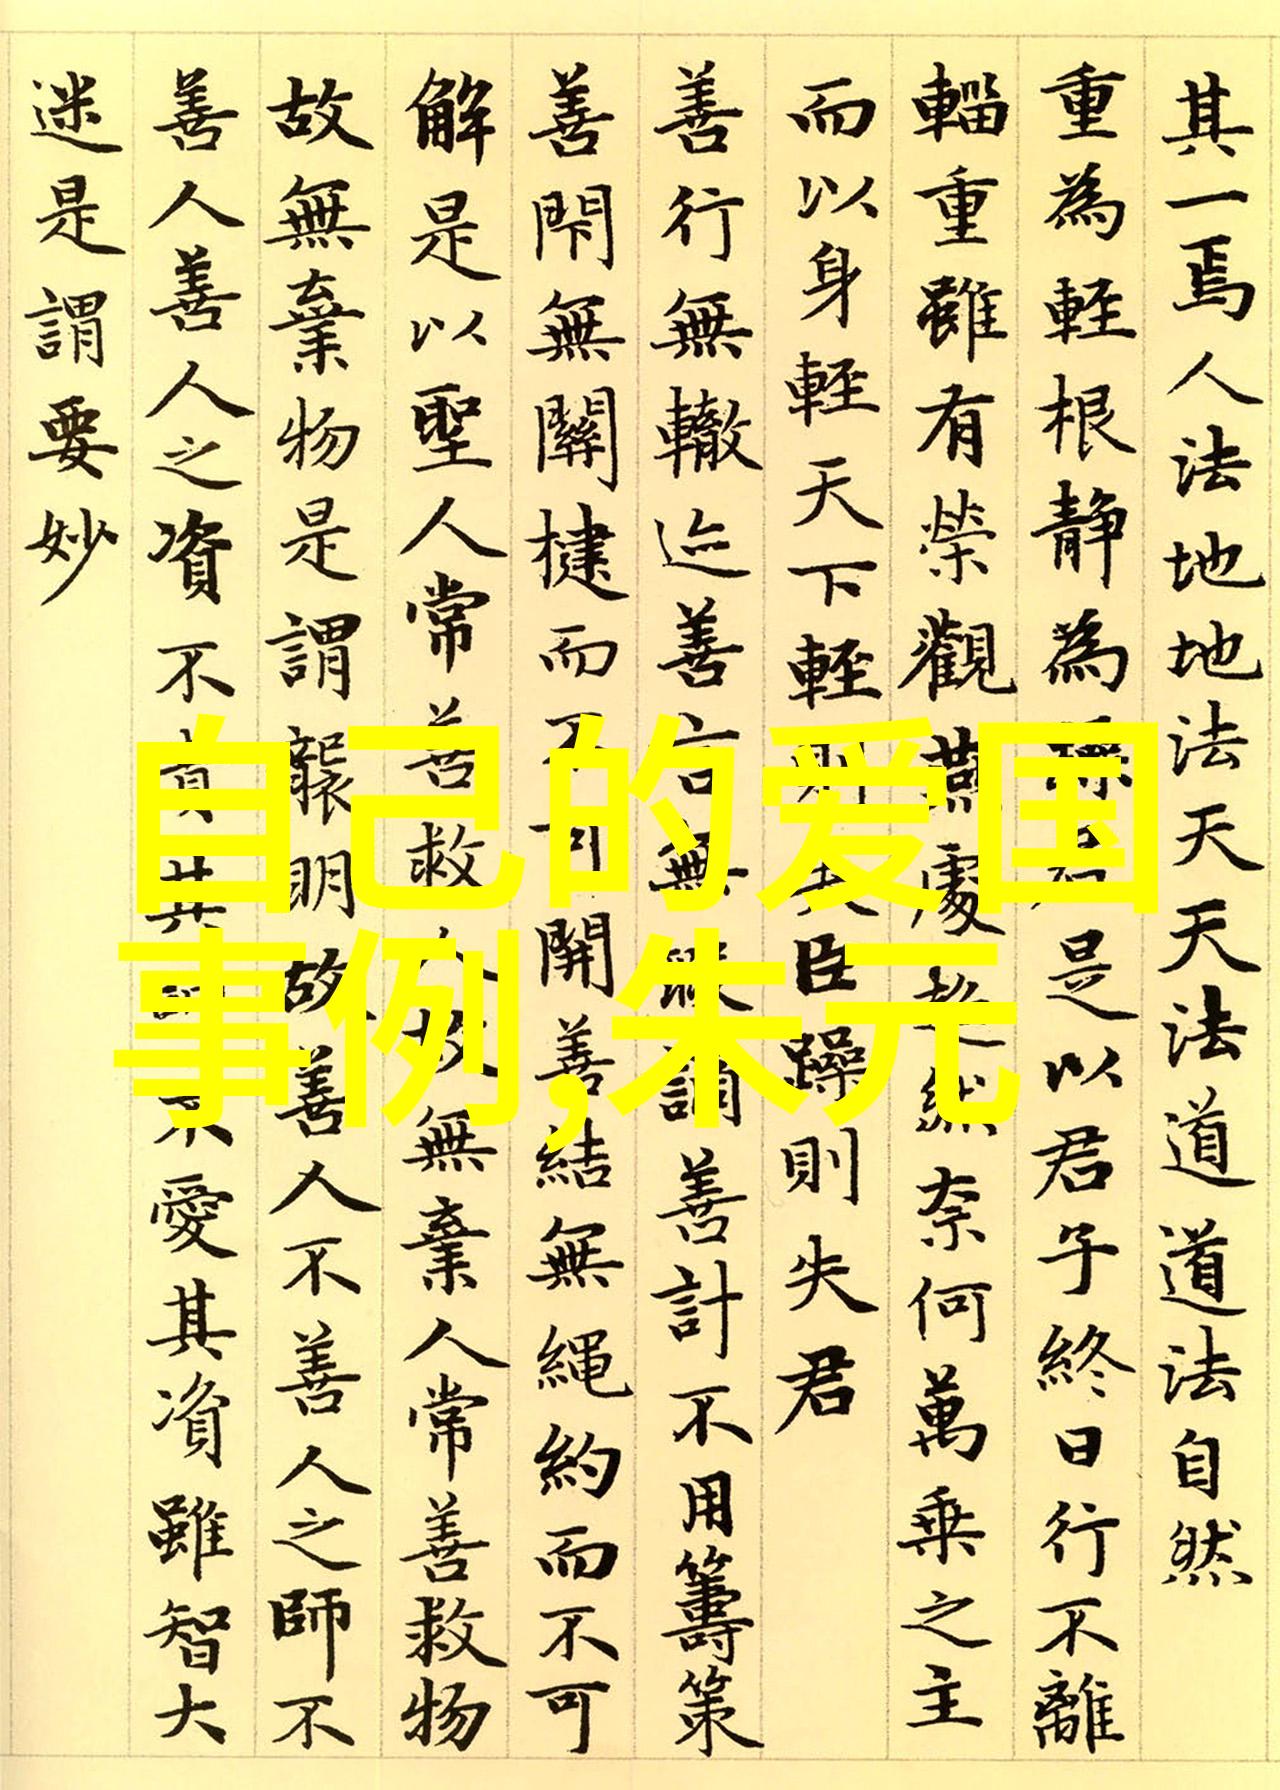 其一焉人法地地法天天法道道法自然
重為輕根靜為躁君是以君子終日行不離
輜重雖有榮觀燕處超然奈何萬乘之主
而以身輕天下輕則失臣躁則失君
善行無轍迹善言無瑕謫善計不用籌策
善閇無關楗而不可開善結無繩約而不可
解是以聖人常善救人故無棄人常善救物
故無棄物是謂襲明故善人不善人之師不
善人善人之資不貴其師不愛其資雖智大
迷是謂要妙
自己的爱国
事例,朱元